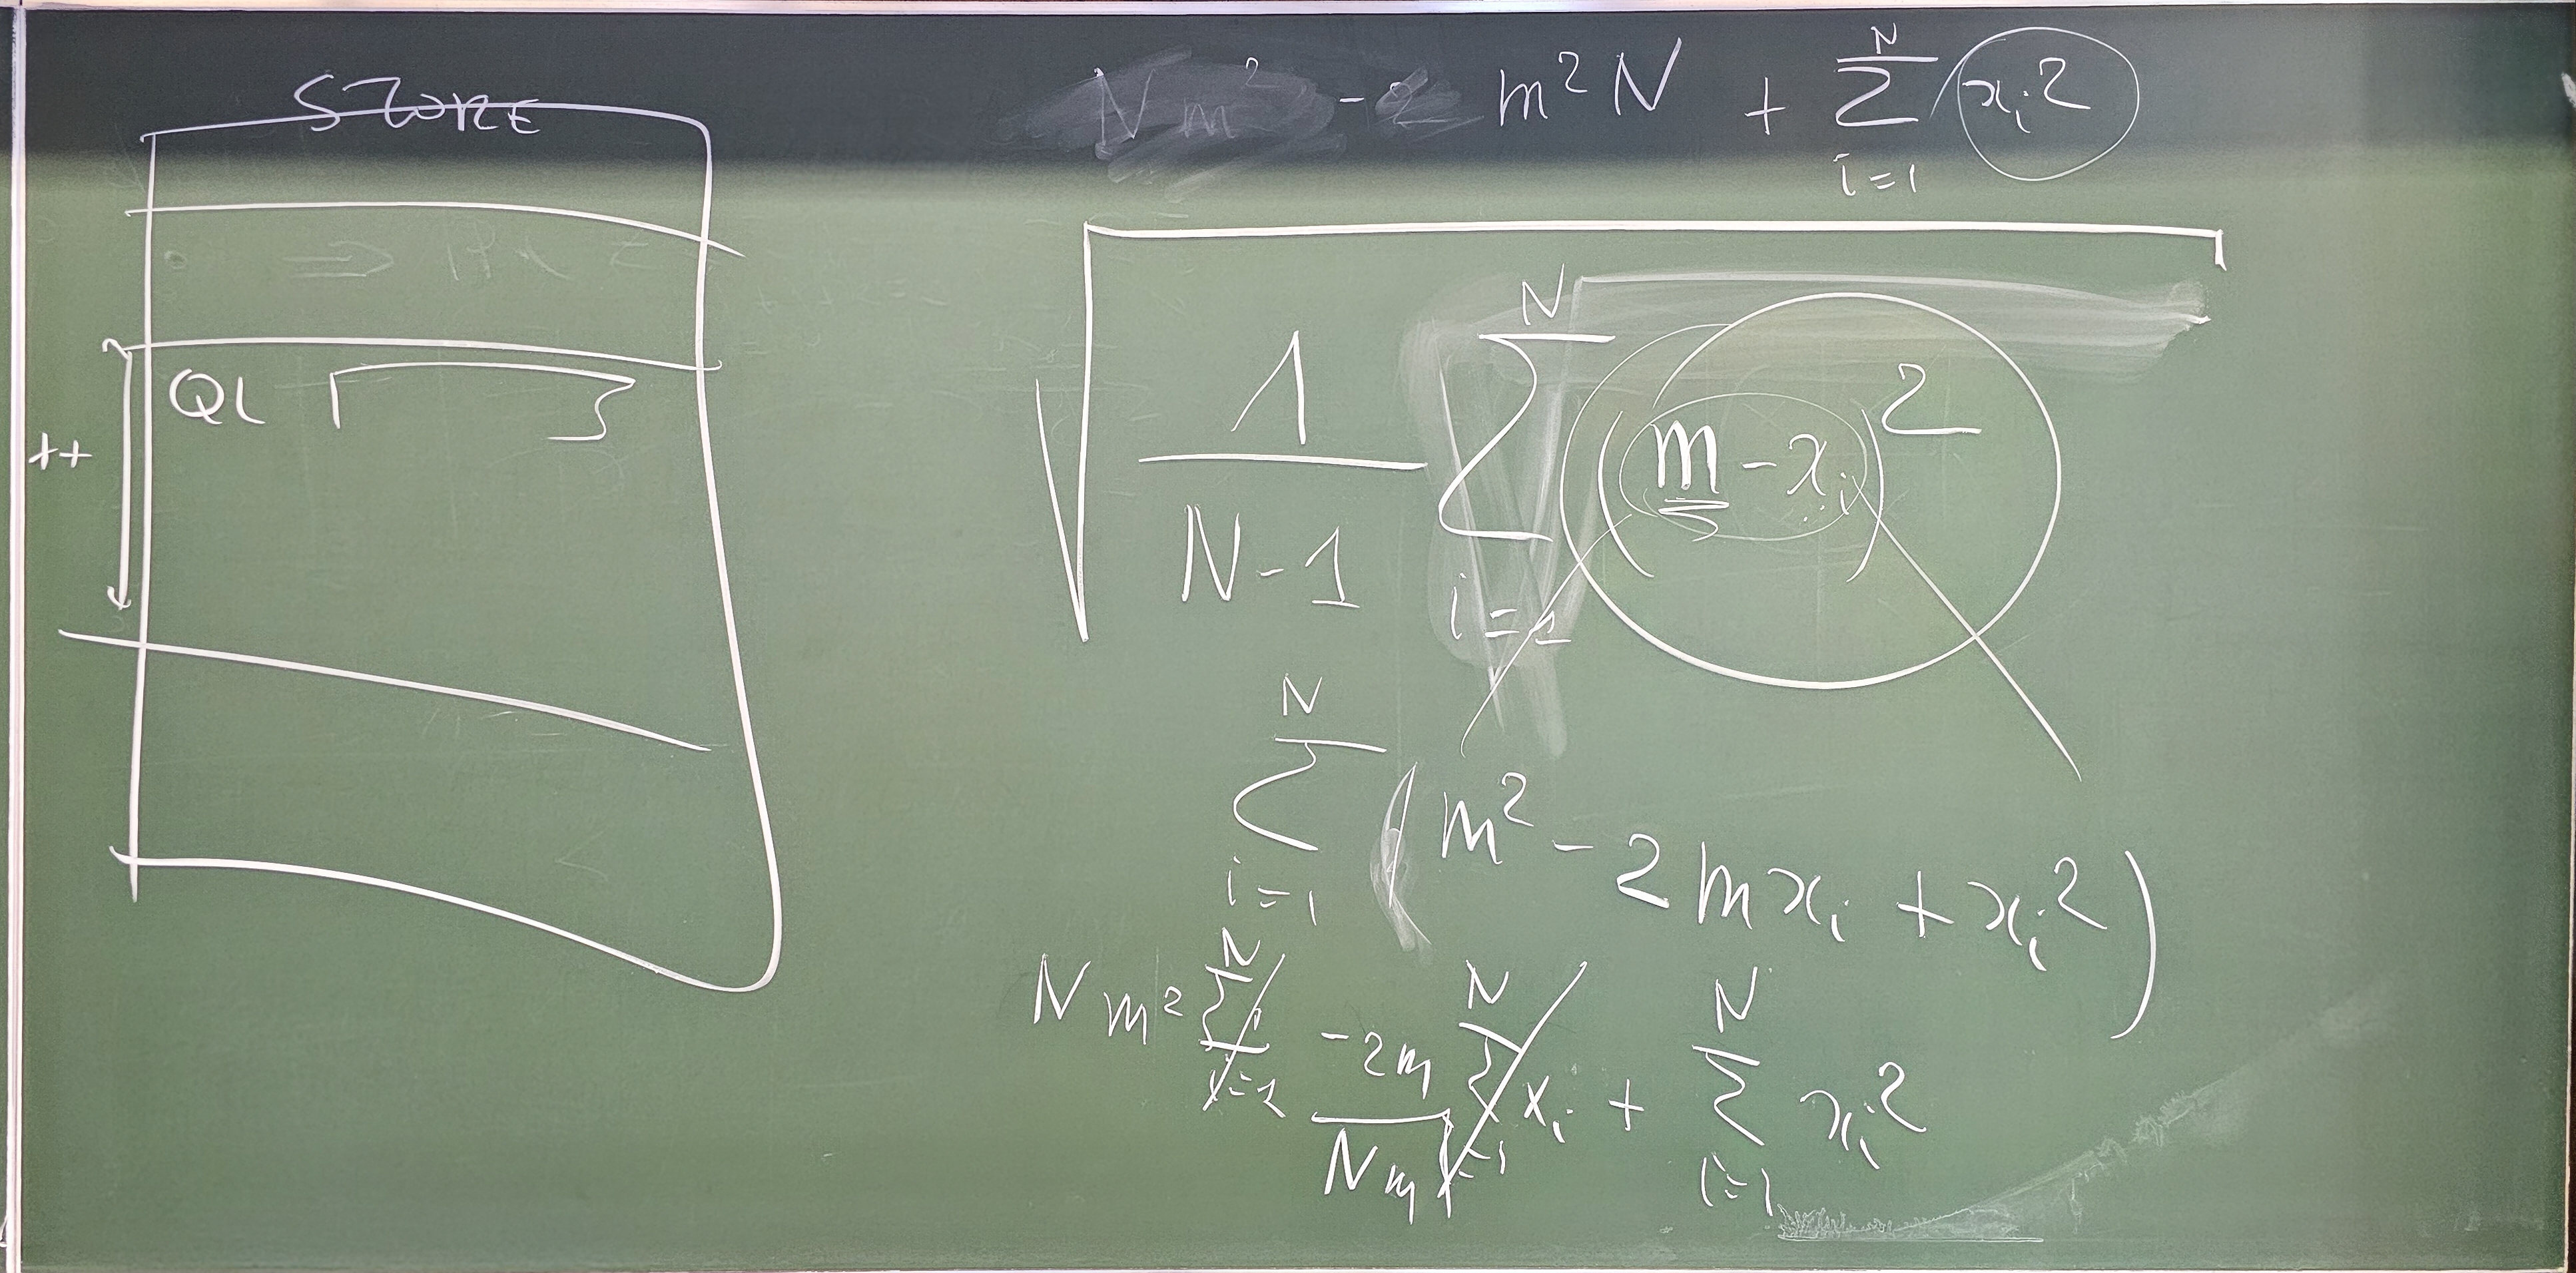 STORE
++
QL
Nm² - 2 m²N + Σ_{i=1}^{N} x_i²
√ 1/(N-1) Σ_{i=1}^{N} (m - x_i)²
Σ_{i=1}^{N} (m² - 2mx_i + x_i²)
Nm² Σ_{i=1}^{N} -2m Σ_{i=1}^{N} x_i + Σ_{i=1}^{N} x_i²
Nm